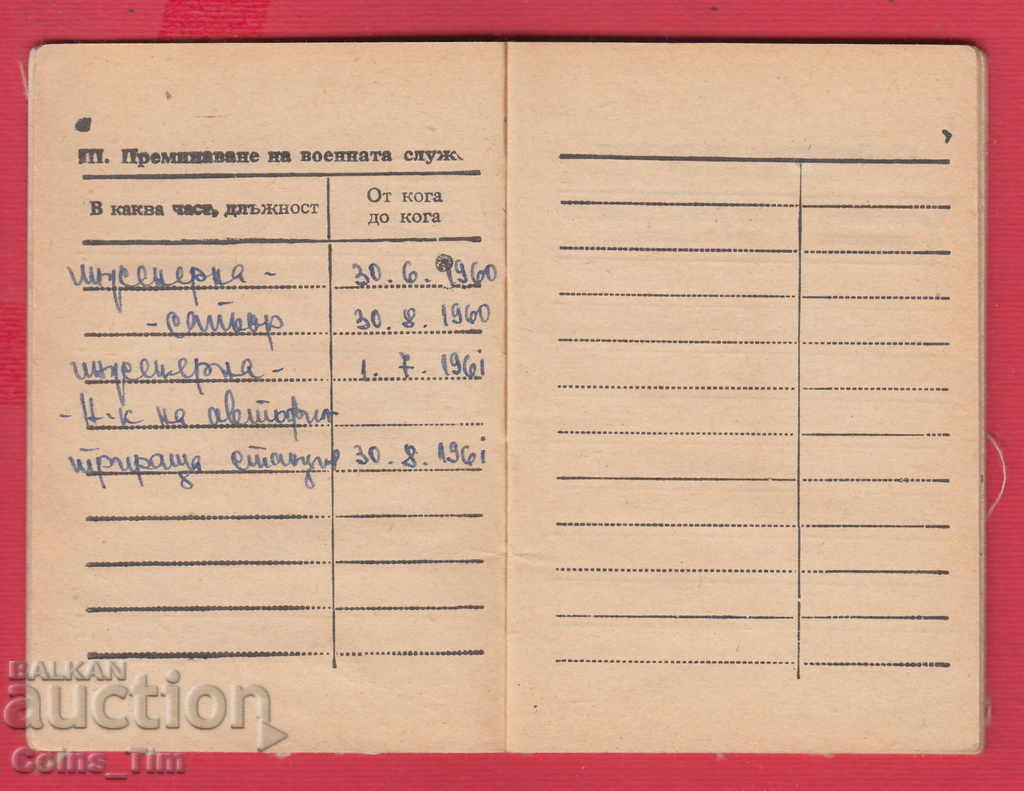 III. Преминаване на военната служ
В каква част, длъжност
От кога
до кога
инженерна - 30.6.1960
- сапьор 30.8.1960
инженерна - 1.7.1961
- Н-к на автофил
трираща станция 30.8.1961
BALKAN
auction
Coins_Tim